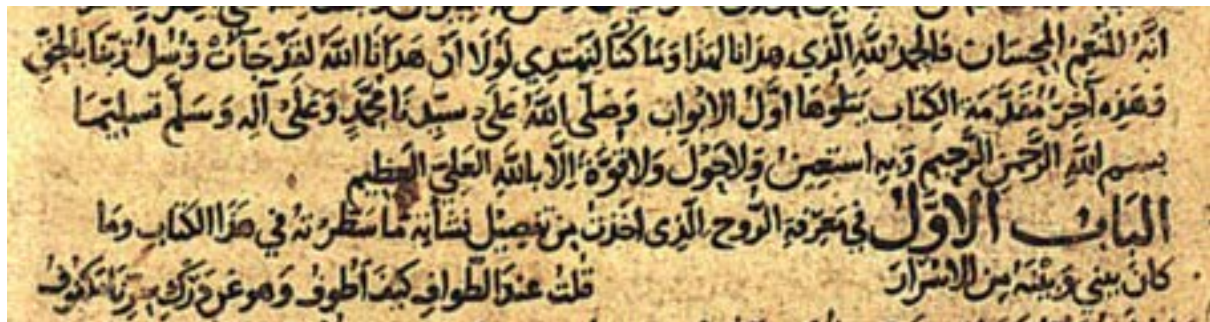 انه المنعم المحسان فالحمد لله الذي هدانا لهذا وما كنا لنهتدي لولا ان هدانا الله لقد جآت رسل ربنا بالحق
وهذه آخر مقدمة الكتاب يتلوها اول الابواب وصلى الله على سيدنا محمد وعلى آله وسلم تسليما
بسم الله الرحمن الرحيم وبه استعين ولا حول ولا قوة إلا بالله العلي العظيم
الباب الاول في معرفة الروح الذي اخذت من تفصيل نشأته ما سطرته في هذا الكتاب وما
كان بيني وبينه من الاسرار قلت عند الطواف كيف اطوف وهو عن درك سرنا مكفوف